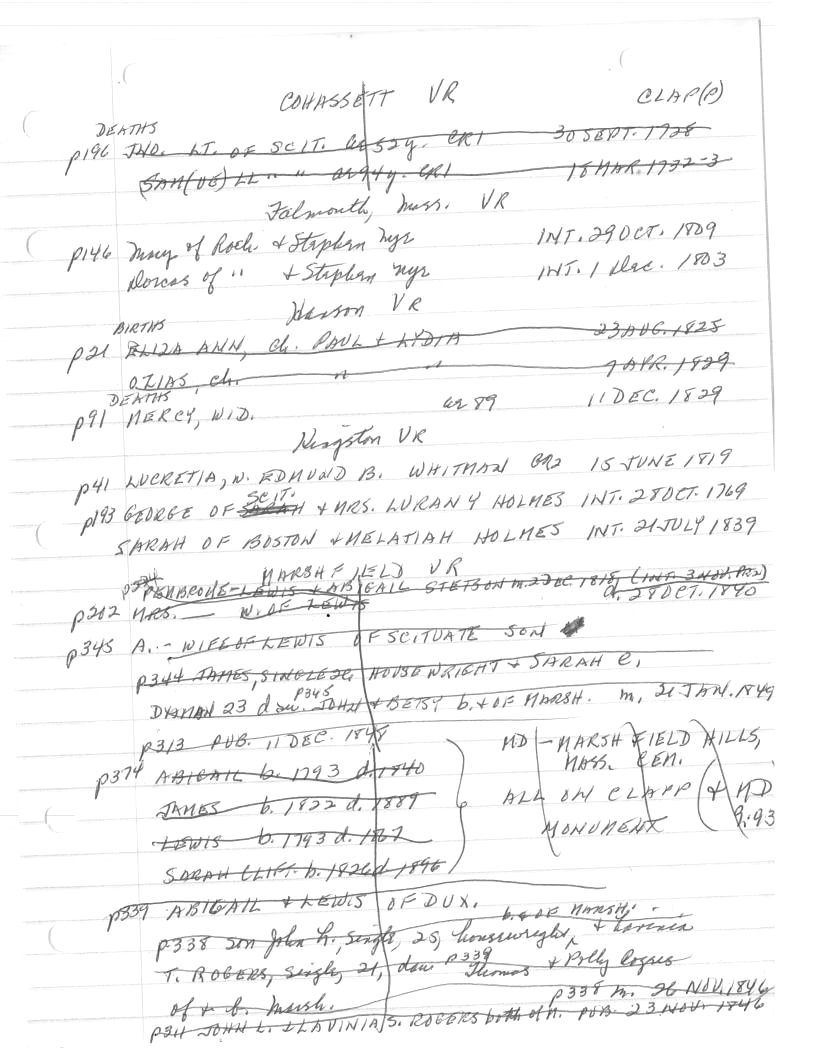 COHASSETT VR CLAP(P)
DEATHS
p196 JNO. LT. OF SCIT. ae 52y. CR1 30 SEPT. 1728
(SAM(UE)LL " " ae 94y. CR1 18 MAR. 1732-3
Falmouth, Mass. VR
p146 Mary of Roch. & Stephen Nye INT. 29 OCT. 1809
Dorcas of " & Stephen Nye INT. 1 Dec. 1803
Hanson VR
BIRTHS
p21 ELIZA ANN, ch. PAUL & LYDIA 23 AUG. 1825
OZIAS, ch. " " 9 APR. 1829
DEATHS
p91 MERCY, WID. ae 89 11 DEC. 1829
Kingston VR
p41 LUCRETIA, w. EDMUND B. WHITMAN GR2 15 JUNE 1819
SCIT.
p193 GEORGE OF SARAH & MRS. LURANY HOLMES INT. 28 OCT. 1769
SARAH OF BOSTON & MELATIAH HOLMES INT. 21 JULY 1839
MARSHFIELD VR
PEMBROKE-LEWIS & ABIGAIL STETSON m. 2 DEC. 1818, (INT. 3 NOV. PR2)
p202 MRS. — W. OF LEWIS d. 28 OCT. 1840
p345 A. - WIFE OF LEWIS OF SCITUATE SON
p344 JAMES, SINGLE 26, HOUSEWRIGHT & SARAH C.
p345
DYAMAN 23 dau. JOHN & BETSY b. & OF MARSH. m. 21 JAN. 1849
p313 PUB. 11 DEC. 1848 MD - MARSHFIELD HILLS,
MASS. CEM.
p374 ABIGAIL b. 1793 d. 1840
JAMES b. 1822 d. 1889 ALL ON CLAPP & MD
LEWIS b. 1793 d. 1867 MONUMENT 9:93
SARAH CLIFT b. 1826 d 1896
p339 ABIGAIL & LEWIS OF DUX.
b. & OF MARSH.
p338 son John L., single, 25, housewright, & Lavinia
p339
T. ROGERS, single, 21, dau Thomas & Polly Rogers
of & b. Marsh. p338 m. 26 NOV. 1846
p311 JOHN L. & LAVINIA S. ROGERS both of M. PUB. 23 NOV. 1846